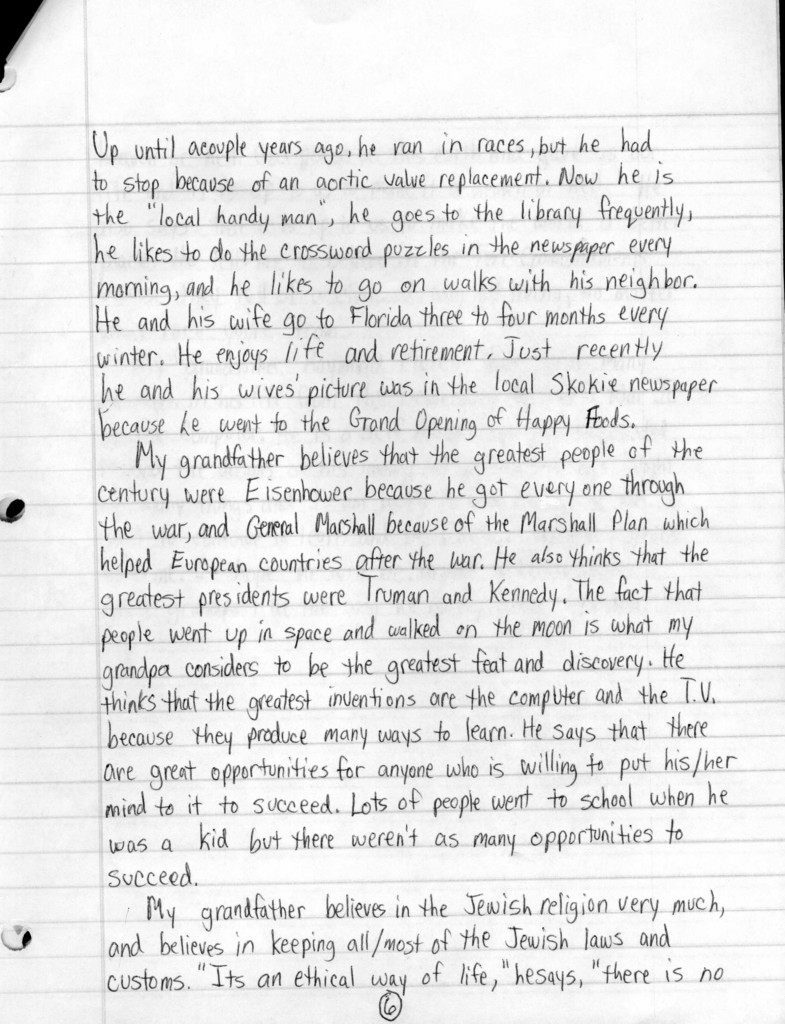 Up until acouple years ago, he ran in races, but he had
to stop because of an aortic valve replacement. Now he is
the "local handy man", he goes to the library frequently,
he likes to do the crossword puzzles in the newspaper every
morning, and he likes to go on walks with his neighbor.
He and his wife go to Florida three to four months every
winter. He enjoys life and retirement. Just recently
he and his wives' picture was in the local Skokie newspaper
because he went to the Grand Opening of Happy Foods.
My grandfather believes that the greatest people of the
century were Eisenhower because he got everyone through
the war, and General Marshall because of the Marshall Plan which
helped European countries after the war. He also thinks that the
greatest presidents were Truman and Kennedy. The fact that
people went up in space and walked on the moon is what my
grandpa considers to be the greatest feat and discovery. He
thinks that the greatest inventions are the computer and the T.V.
because they produce many ways to learn. He says that there
are great opportunities for anyone who is willing to put his/her
mind to it to succeed. Lots of people went to school when he
was a kid but there weren't as many opportunities to
succeed.
My grandfather believes in the Jewish religion very much,
and believes in keeping all/most of the Jewish laws and
customs. "Its an ethical way of life," hesays, "there is no
6